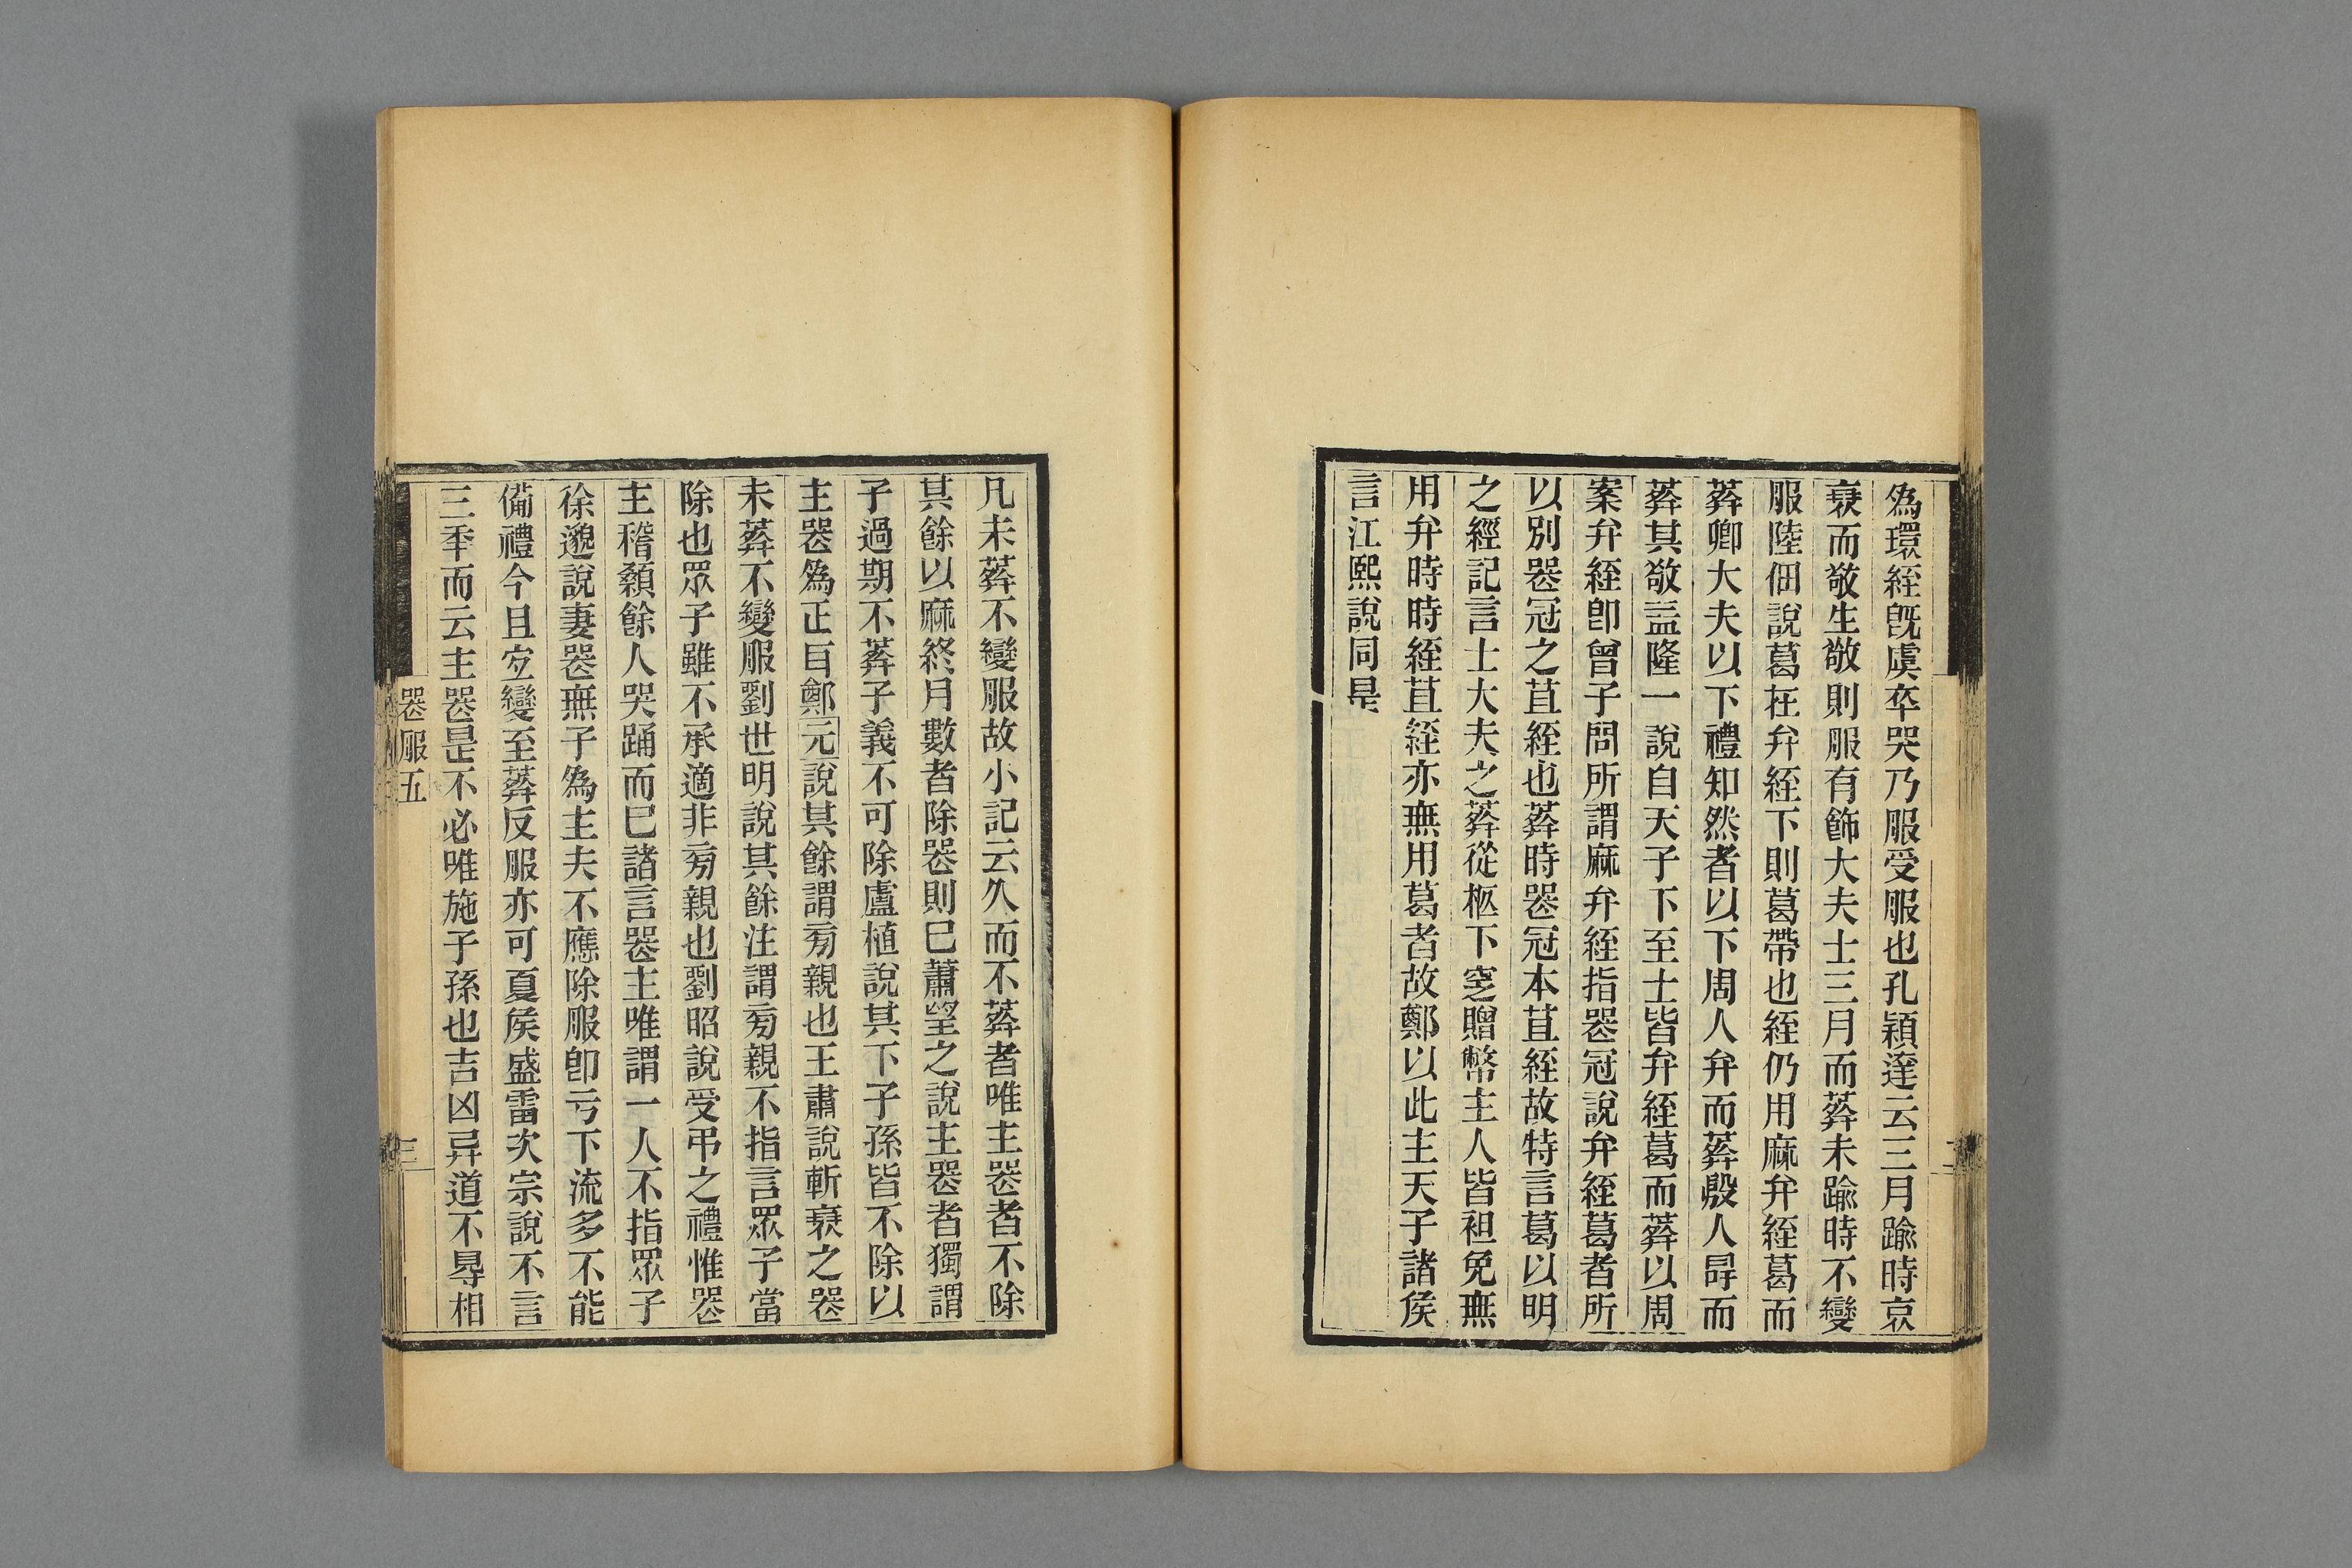 為環絰旣虞卒哭乃服受服也孔穎達云三月踰時哀
衰而敬生敬則服有飾大夫士三月而葬未踰時不變
服陸佃說葛在弁絰下則葛帶也絰仍用麻弁絰葛而
葬卿大夫以下禮知然者以下周人弁而葬殷人冔而
葬其敬盖隆一說自天子下至士皆弁絰葛而葬以周
案弁絰卽曾子問所謂麻弁絰指喪冠說弁絰葛者所
以別喪冠之苴絰也葬時喪冠本苴絰故特言葛以明
之經記言士大夫之葬從柩下窆贈幣主人皆袒免無
用弁時時絰苴絰亦無用葛者故鄭以此主天子諸侯
言江熙說同是
凡未葬不變服故小記云久而不葬者唯主喪者不除
其餘以麻終月數者除喪則巳蕭望之說主喪者獨謂
子過期不葬子義不可除盧植說其下子孫皆不除以
主喪為正𦣞鄭元說其餘謂㫄親也王肅說斬衰之喪
未葬不變服劉世明說其餘注謂㫄親不指言眾子當
除也眾子雖不承適非㫄親也劉昭說受弔之禮惟喪
主稽顙餘人哭踊而巳諸言喪主唯謂一人不指眾子
徐邈說妻喪無子為主夫不應除服卽亏下流多不能
備禮今且宐變至葬反服亦可夏侯盛雷次宗說不言
三秊而云主喪是不必唯施子孫也吉凶异道不㝵相
喪服五
三